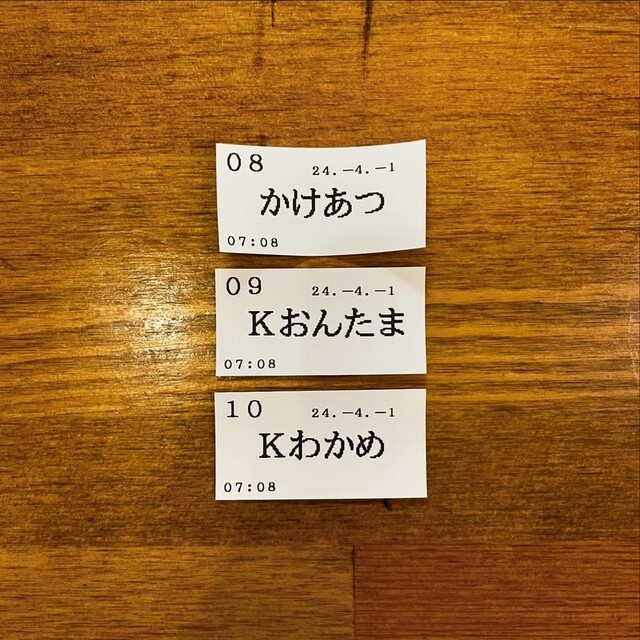 08 24.-4.-1
かけあつ
07:08
09 24.-4.-1
Kおんたま
07:08
10 24.-4.-1
Kわかめ
07:08